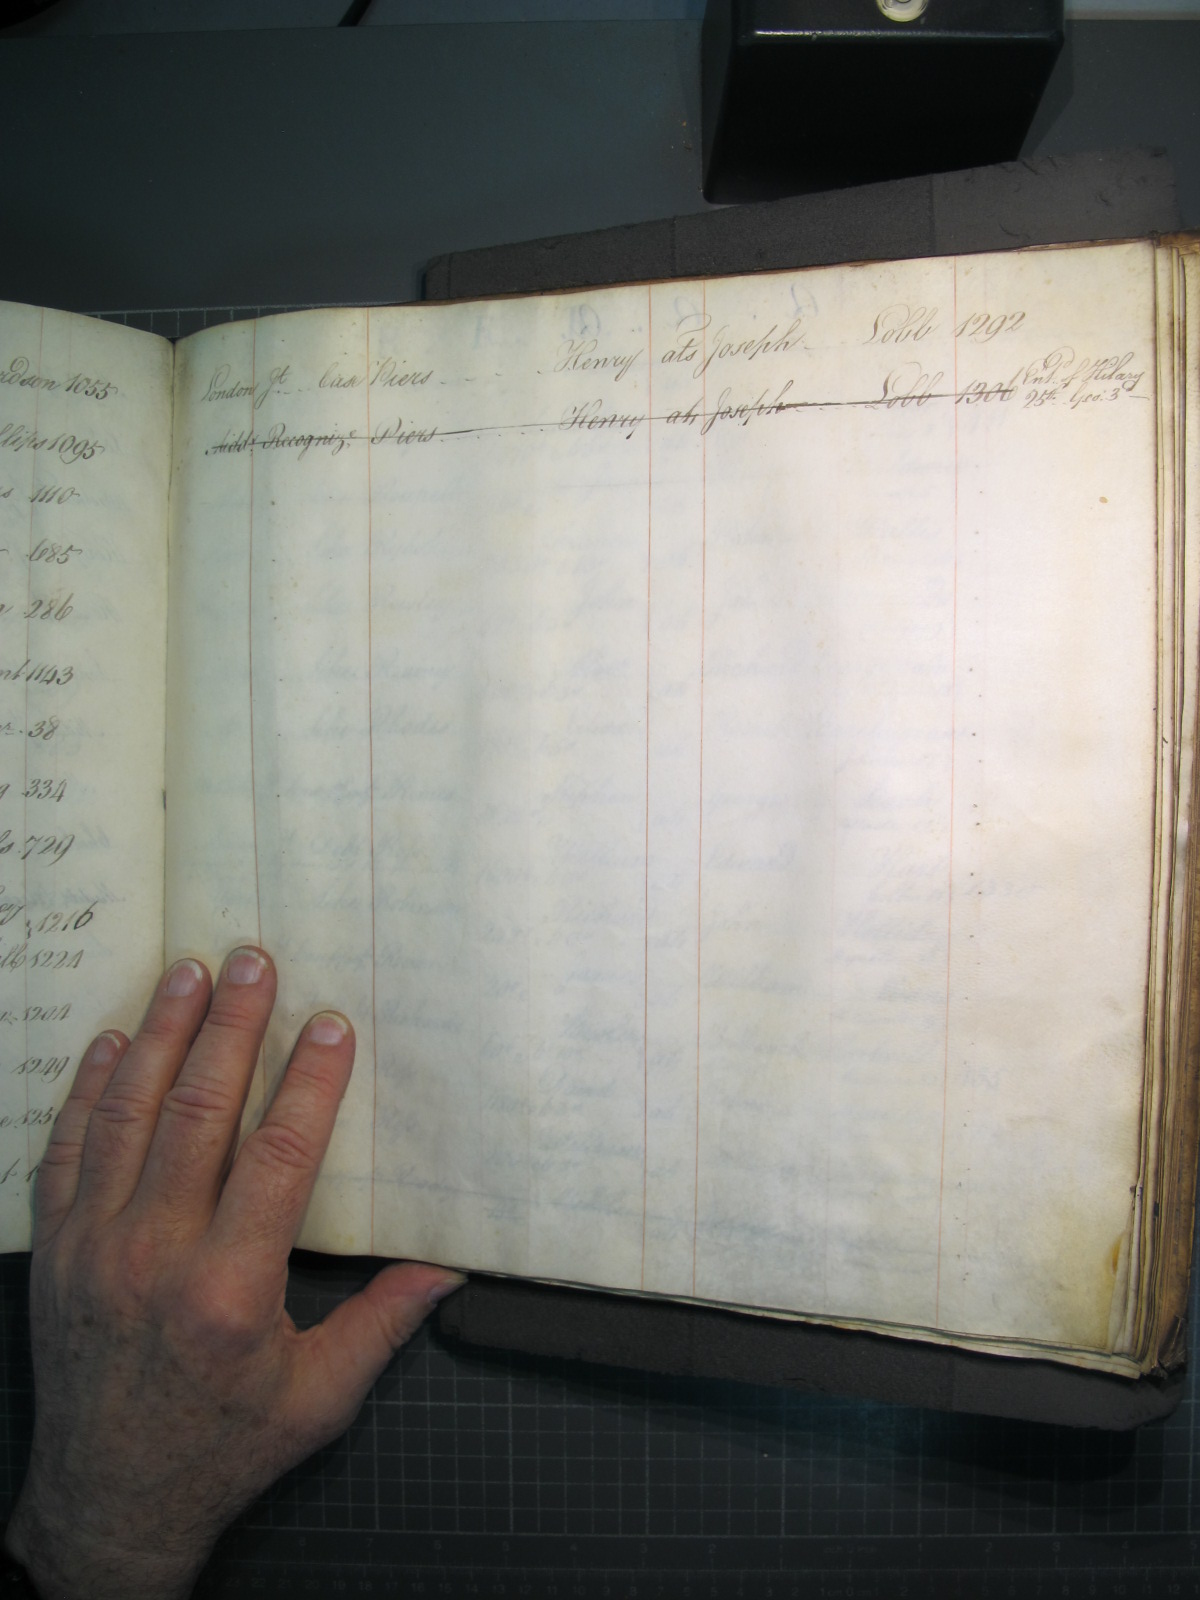 rdson 1055
llips 1095
s 1110
685
286
1143
38
334
729
1216
1221
1201
1249
London Jt. Case Piers Henry ats Joseph Lobb 1292
Addl. Recognize. Piers Henry ats Joseph Lobb 1306 Ent.d of Hilary
25th Geo: 3